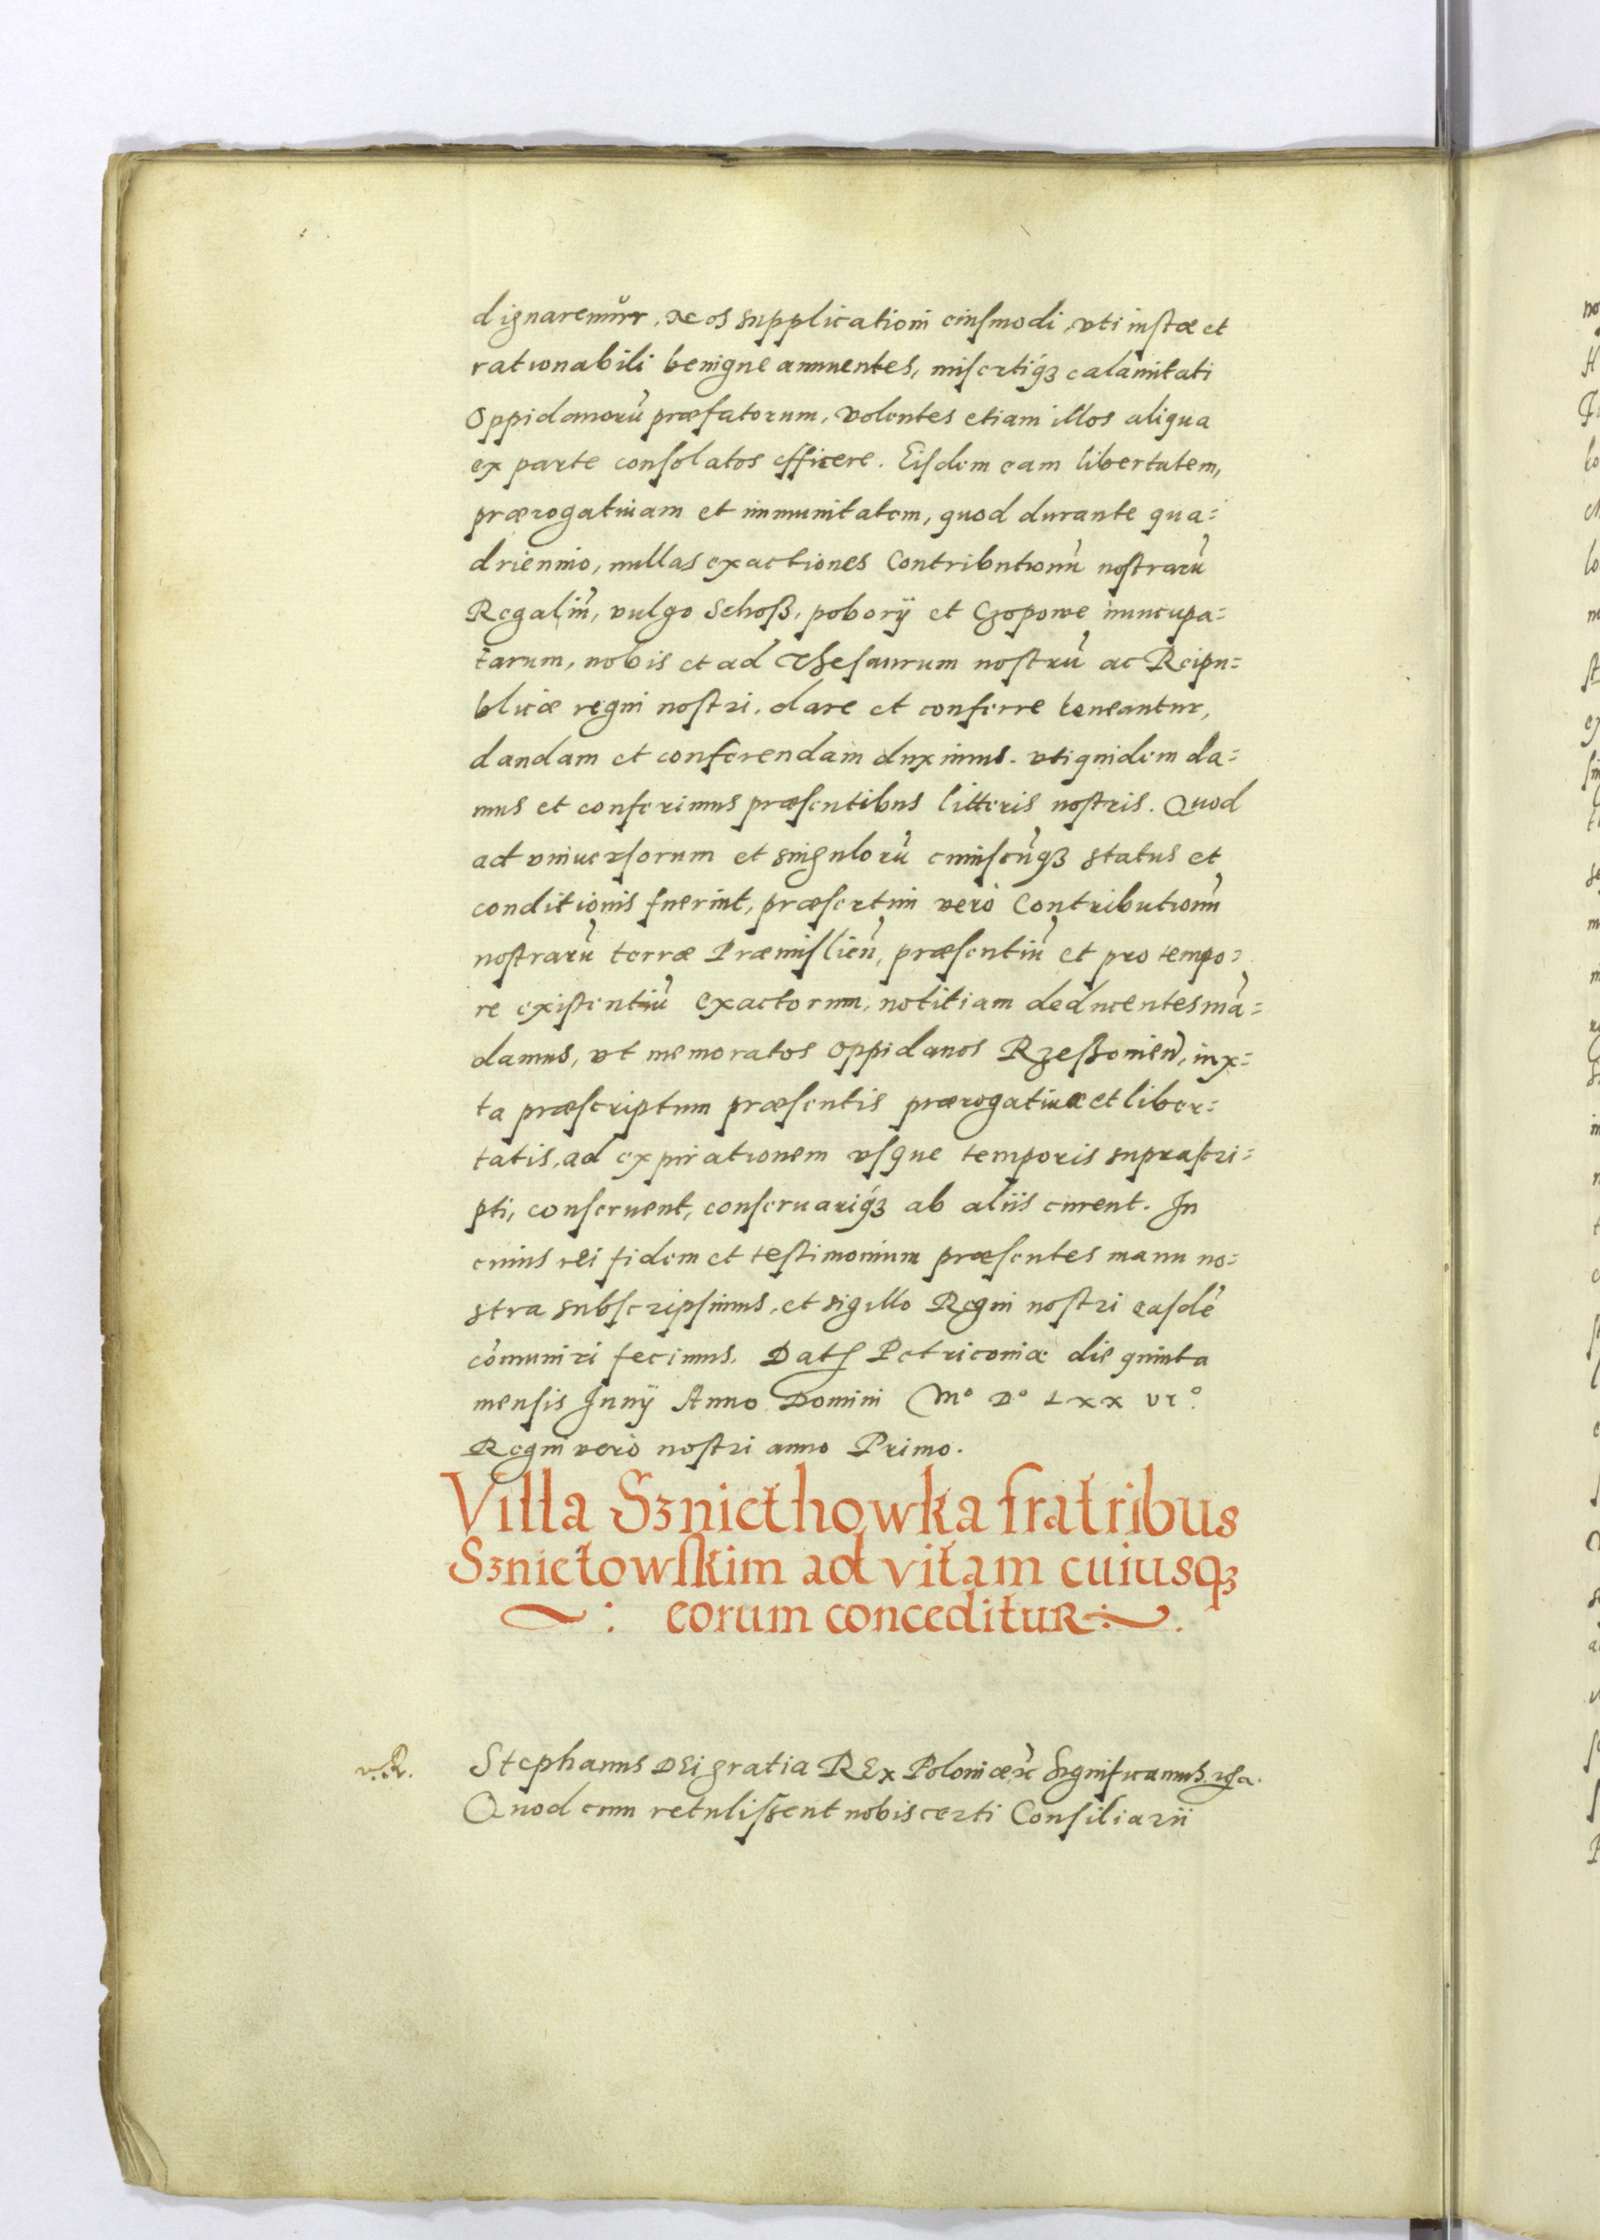 dignaremur, Nos supplicationi eiusmodi, vti iustæ et
rationabili benigne annuentes, misertiq́ꝫ calamitati
Oppidanorũ præfatorum, volentes etiam illos aliqua
ex parte consolatos efficere. Eisdem eam libertatem,
prærogatiuam et immunitatem, quod durante qua=
driennio, nullas exactiones Contributionũ nostrarũ
Regaliũ, vulgo Schoß, poborÿ et Czopowe nuncupa=
tarum, nobis et ad Thesaurum nostrũ ac Reipu=
blicæ regni nostri, dare et conferre teneantur,
dandam et conferendam duximus. vti quidem da=
mus et conferimus præsentibus litteris nostris. Quod
ad vniuersorum et singulorũ cuiuscũqꝫ status et
conditionis fuerint, præsertim verò Contributionũ
nostrarũ terræ Præmislieñ, præsentiũ et pro tempo=
re existentiũ exactorum, notitiam deducentes mã=
damus, vt memoratos oppidanos Rzeßonieñ, iux=
ta præscriptum præsentis prærogatiuæ et liber=
tatis, ad expirationem vsque temporis suprascri=
pti, conseruent, conseruariq́ꝫ ab aliis curent. In
cuius rei fidem et testimonium præsentes manu no=
stra subscripsimus, et sigillo Regni nostri easdẽ
cõmuniri fecimus. Datꝭ Petriconiæ die quinta
mensis Junÿ Anno Domini Mº Dº LXX VIº.
Regni verò nostri anno Primo.
Villa Sznicthowka fratribus
Sznictowskim ad vitam cuiusqꝫ
eorum conceditur
v. R.
Stephanus DEi gratia REx Poloniæ ꝛc̃ Significamus ꝛc̃a.
Quod cum retulißent nobis certi Consiliarii